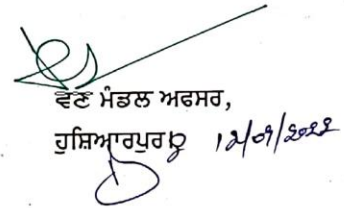 ਵਣ ਮੰਡਲ ਅਫਸਰ,
ਹੁਸ਼ਿਆਰਪੁਰ 12/09/2022